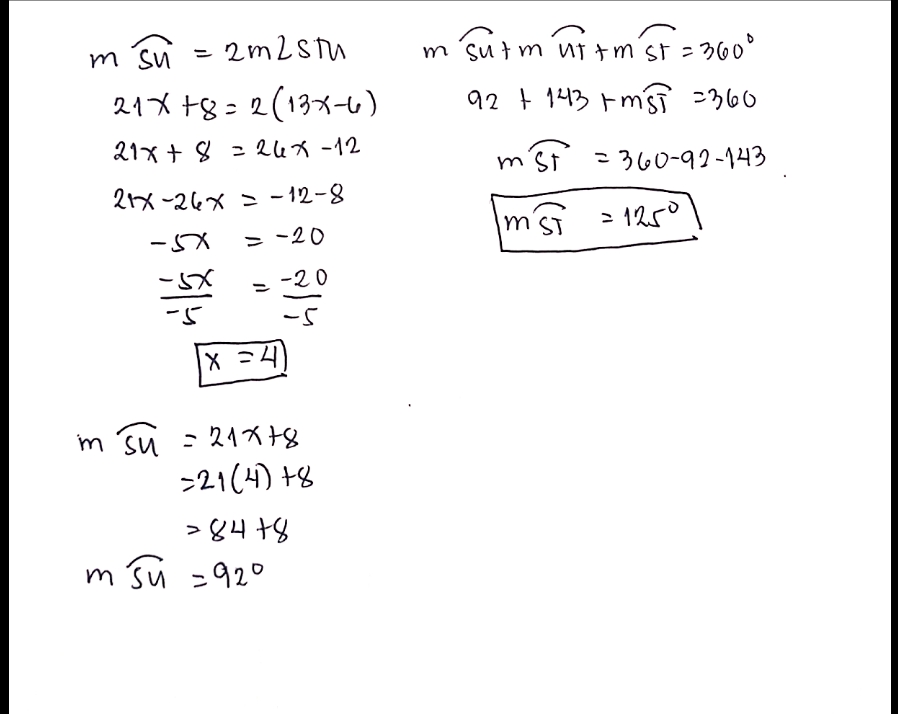 m S͡U = 2m∠STU
21x + 8 = 2(13x-6)
21x + 8 = 26x - 12
21x - 26x = -12-8
-5x = -20
-5x/-5 = -20/-5
x = 4
m S͡U = 21x+8
=21(4) +8
= 84 +8
m S͡U = 92°
m S͡U + m U͡T + m S͡T = 360°
92 + 143 + m S͡T = 360
m S͡T = 360-92-143
m S͡T = 125°